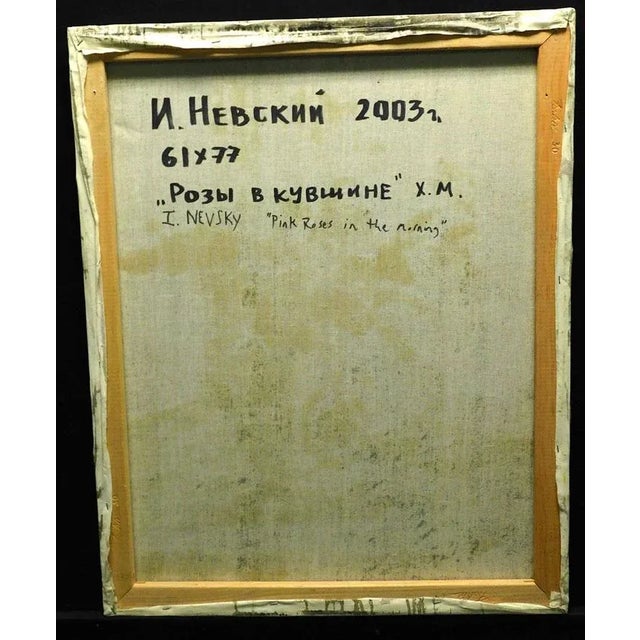 И. НЕВСКИЙ 2003г.
61х77
„РОЗЫ В КУВШИНЕ" Х.М.
I. NEVSKY "Pink Roses in the morning"